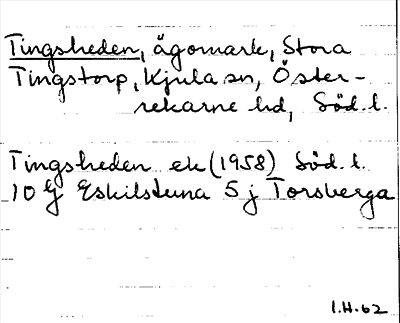 Tingsheden, ägomark, Stora
Tingstorp, Kjula sn, Öster-
rekarne hd, Söd. l.
Tingsheden ek (1958) Söd. l.
10 G Eskilstuna 5 j Torsberga
1.H.62